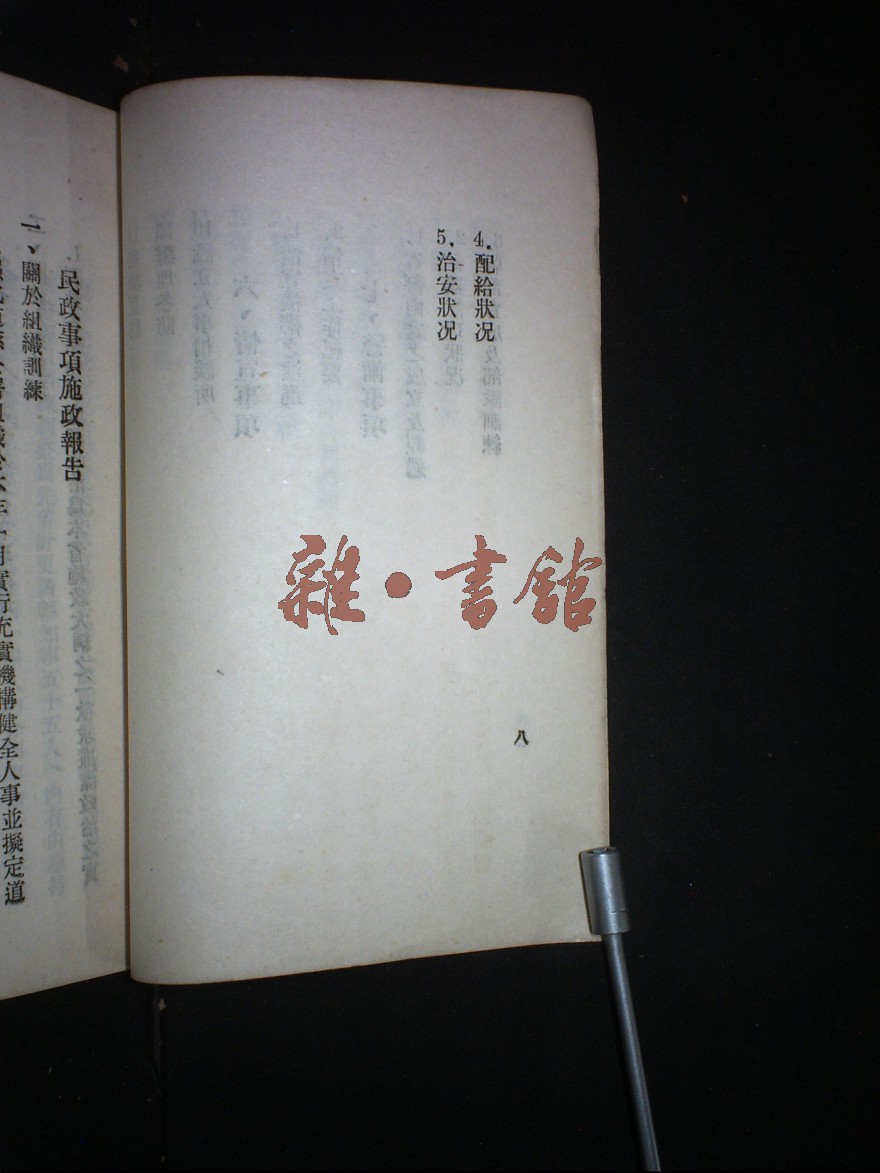 4.配給狀況
5.治安狀況
八
民政事項施政報告
一、關於組織訓練
月實行充實機構健全人事並擬定道
雜·書館